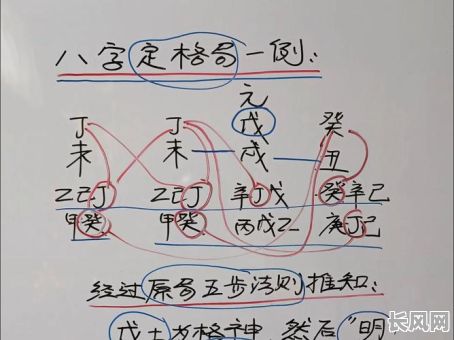 八字定格局一例：
元
丁 丁 戊 癸
未 未 戌 丑
乙己丁 乙己丁 辛丁戊 癸辛己
甲癸 甲癸 丙戊乙 庚丁己
经过原局五步法则推知：
戊土为格神，然后“明
长风网